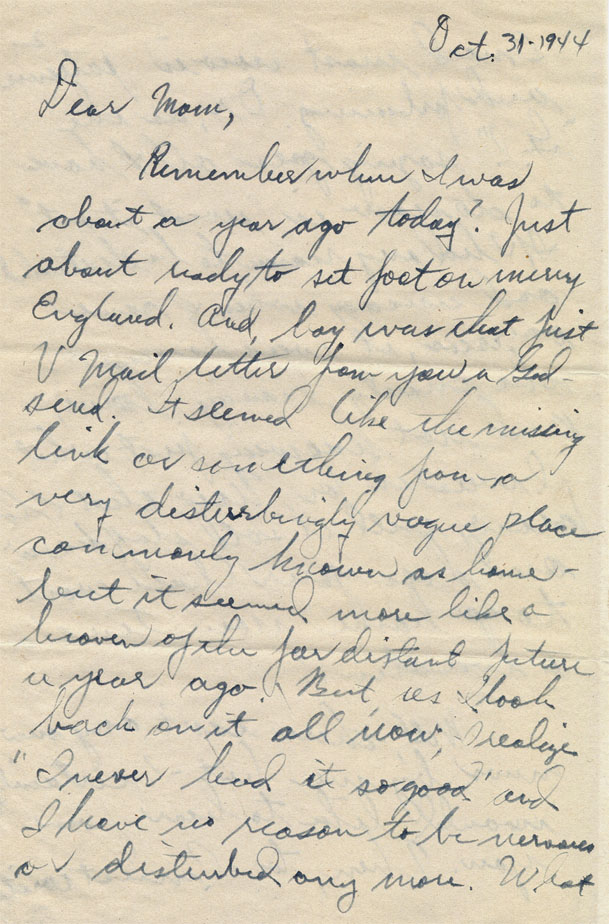 Oct. 31-1944
Dear Mom,
Remember when I was
about a year ago today? Just
about ready to set foot on merry
England. And, boy was that first
V Mail letter from you a God-
send. It seemed like the missing
link or something from a
very disturbingly vague place
commonly known as home -
but it seemed more like a
haven of the far distant future
a year ago. But, as I look
back on it all now, I realize
"I never had it so good" and
I have no reason to be nervous
or disturbed any more. What